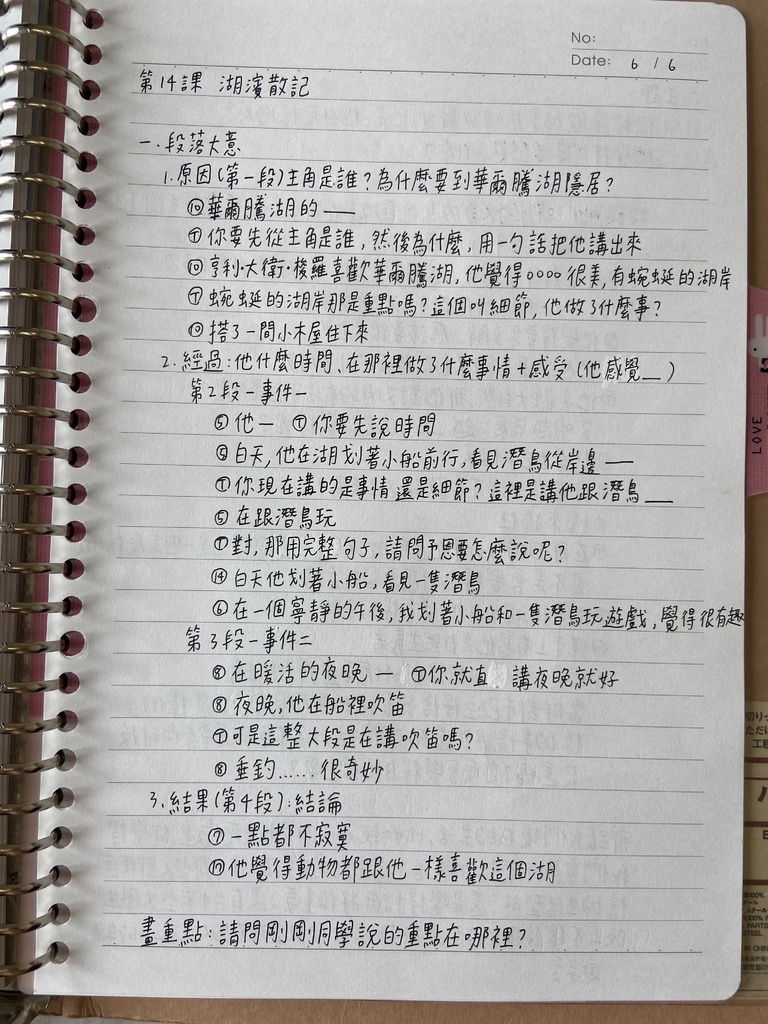 No:
Date: 6 / 6
第14課 湖濱散記
一.段落大意
1.原因(第一段)主角是誰?為什麼要到華爾騰湖隱居?
⑩華爾騰湖的——
Ⓣ你要先從主角是誰,然後為什麼,用一句話把他講出來
⑩亨利·大衛·梭羅喜歡華爾騰湖,他覺得○○○○很美,有蜿蜒的湖岸
Ⓣ蜿蜒的湖岸那是重點嗎?這個叫細節,他做了什麼事?
搭了一間小木屋住下來
2.經過:他什麼時間、在那裡做了什麼事情+感受(他感覺__)
第2段-事件一
⑤他— Ⓣ你要先說時間
⑤白天,他在湖划著小船前行,看見潛鳥從岸邊——
Ⓣ你現在講的是事情還是細節?這裡是講他跟潛鳥__
⑤在跟潛鳥玩
Ⓣ對,那用完整句子,請問予恩要怎麼說呢?
⑭白天他划著小船,看見一隻潛鳥
⑥在一個寧靜的午後,我划著小船和一隻潛鳥玩遊戲,覺得很有趣
第3段-事件二
⑧在暖活的夜晚— Ⓣ你就直 講夜晚就好
⑧夜晚,他在船裡吹笛
Ⓣ可是這整大段是在講吹笛嗎?
⑧垂釣……很奇妙
3.結果(第4段):結論
⑦一點都不寂寞
他覺得動物都跟他一樣喜歡這個湖
畫重點:請問剛剛同學說的重點在哪裡?
LOVE